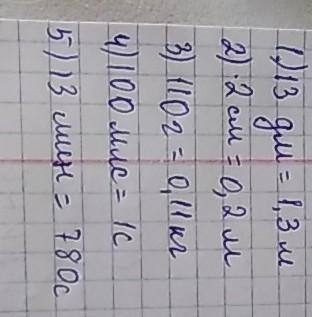 1) 13 дм = 1,3 м
2) 2 см = 0,2 м
3) 110 г = 0,11 кг
4) 100 млс = 1с
5) 13 мин = 780с